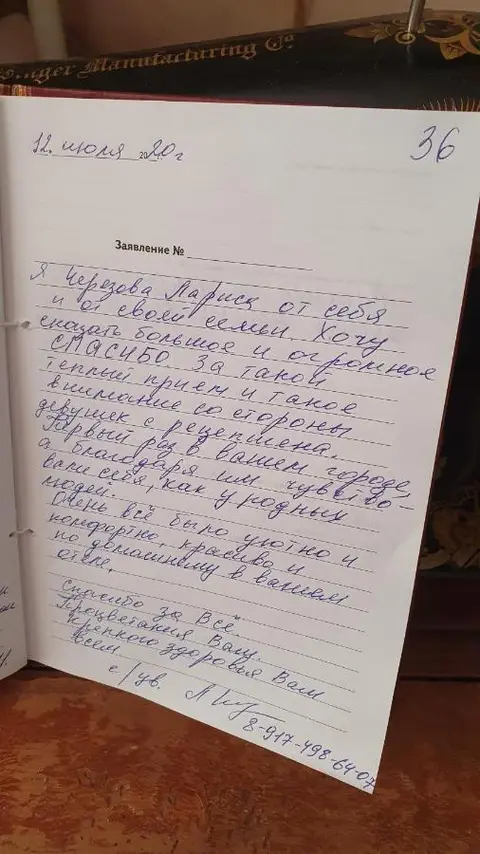 Singer Manufacturing Co
36
12. июля 2020 г
Заявление №
Я Черезова Лариса от себя
и от своей семьи Хочу
сказать большое и огромное
СПАСИБО за такой
теплый прием и такое
внимание со стороны
девушек с рецепшена.
Первый раз в вашем городе,
а благодаря им чувство-
вали себя, как у родных
людей.
Очень всё было уютно и
комфортно, красиво и
по домашнему в вашем
отеле.
Спасибо за Всё.
Процветания Вам.
Крепкого здоровья Вам
всем
с/ув.
8-917-498-64-07